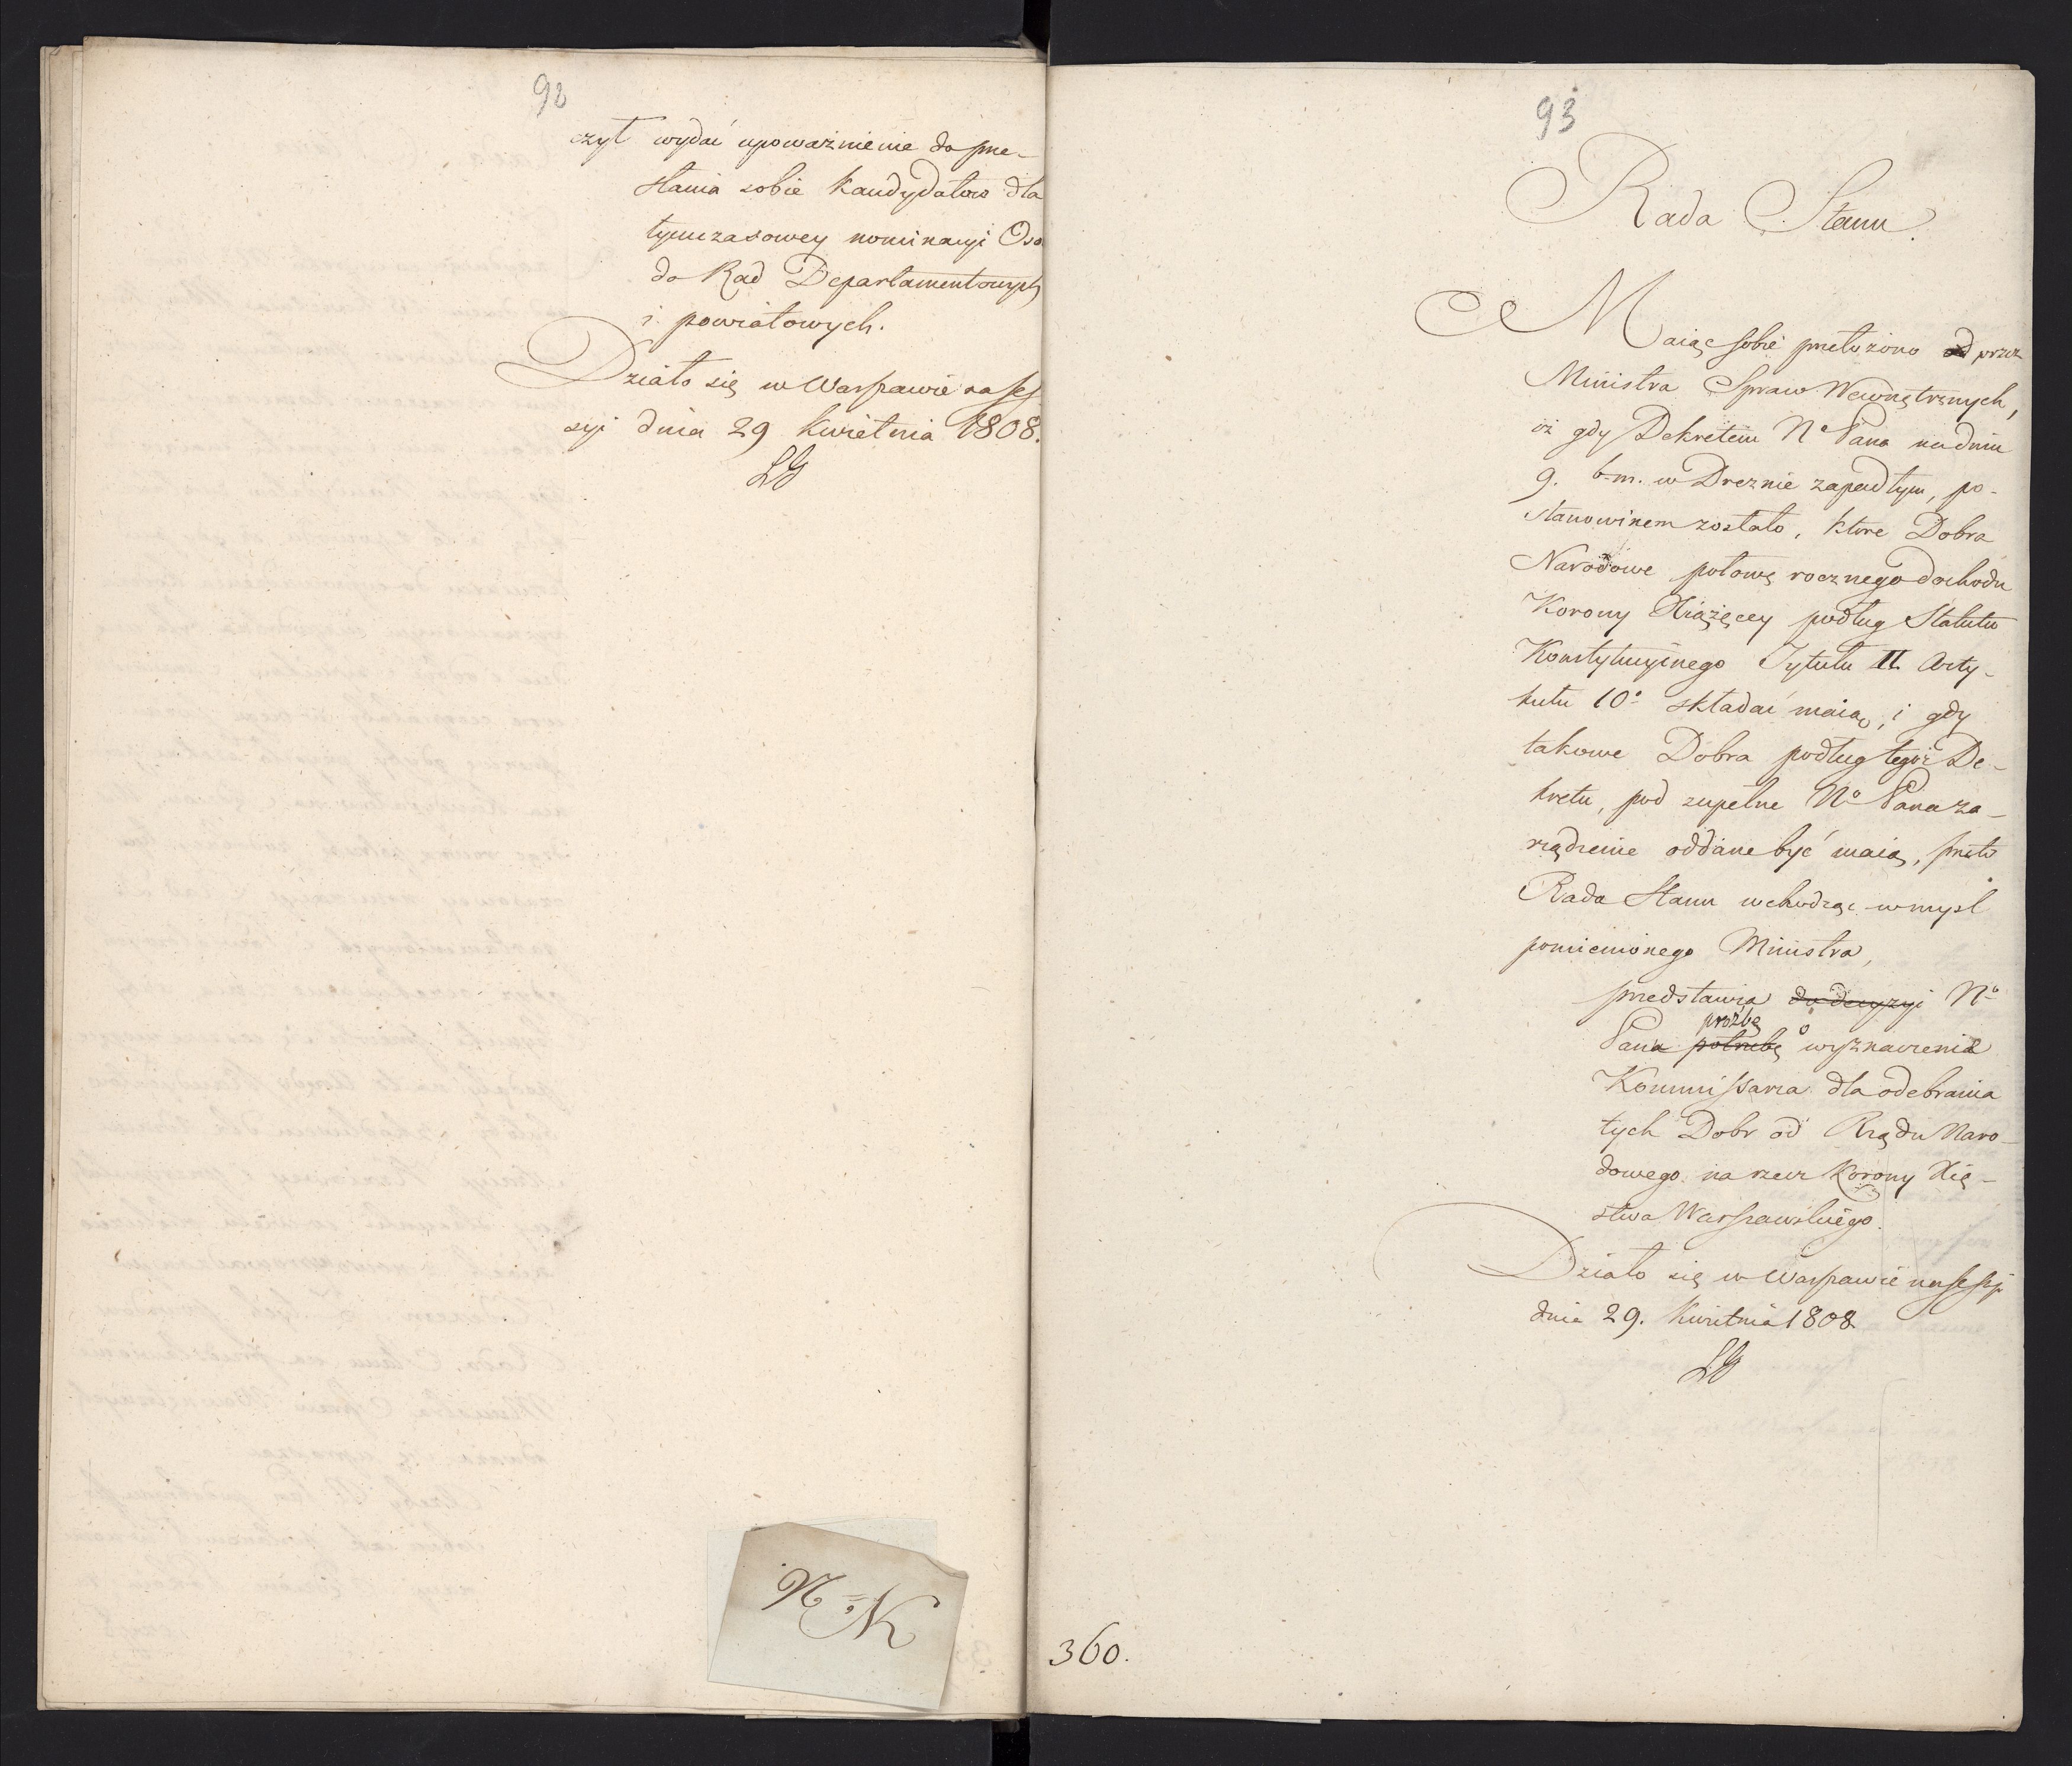 92
czył wydać upoważnienie do prze-
słania sobie kandydatow dla
tymczasowey nominacyi Oso
do Rad Departamentowych
i powiatowych.
Działo się w Warszawie na ses
syi dnia 29 kwietnia 1808.
LG
N=K
93
Rada Stanu.
Maiąc sobie przełożono od przez
Ministra Spraw Wewnętrznych,
iż gdy Dekretem No Pana na dniu
9. b.m. w Dreznie zapadłym, po-
stanowionem zostało, ktore Dobra
Narodowe połowę rocznego dochodu
Korony Xiążęcey podług Statutu
Konstytucyinego Tytułu II. Arty-
kułu 10o składać maią, i gdy
takowe Dobra podług tegoż De-
kretu, pod zupełne No Pana za-
rządzenie oddane być maią, przeto
Rada Stanu wchodząc w mysl
pomienionego Ministra,
przedstawia do decyzyi No
prożbę
Pana potrzebę o wyznaczenie
Kommissarza dla odebrania
tych Dobr od Rządu Naro-
dowego na rzecz Korony Xię-
stwa Warszawskiego.
Działo się w Warszawie na sessyi
dnia 29. Kwietnia 1808
LG
360.